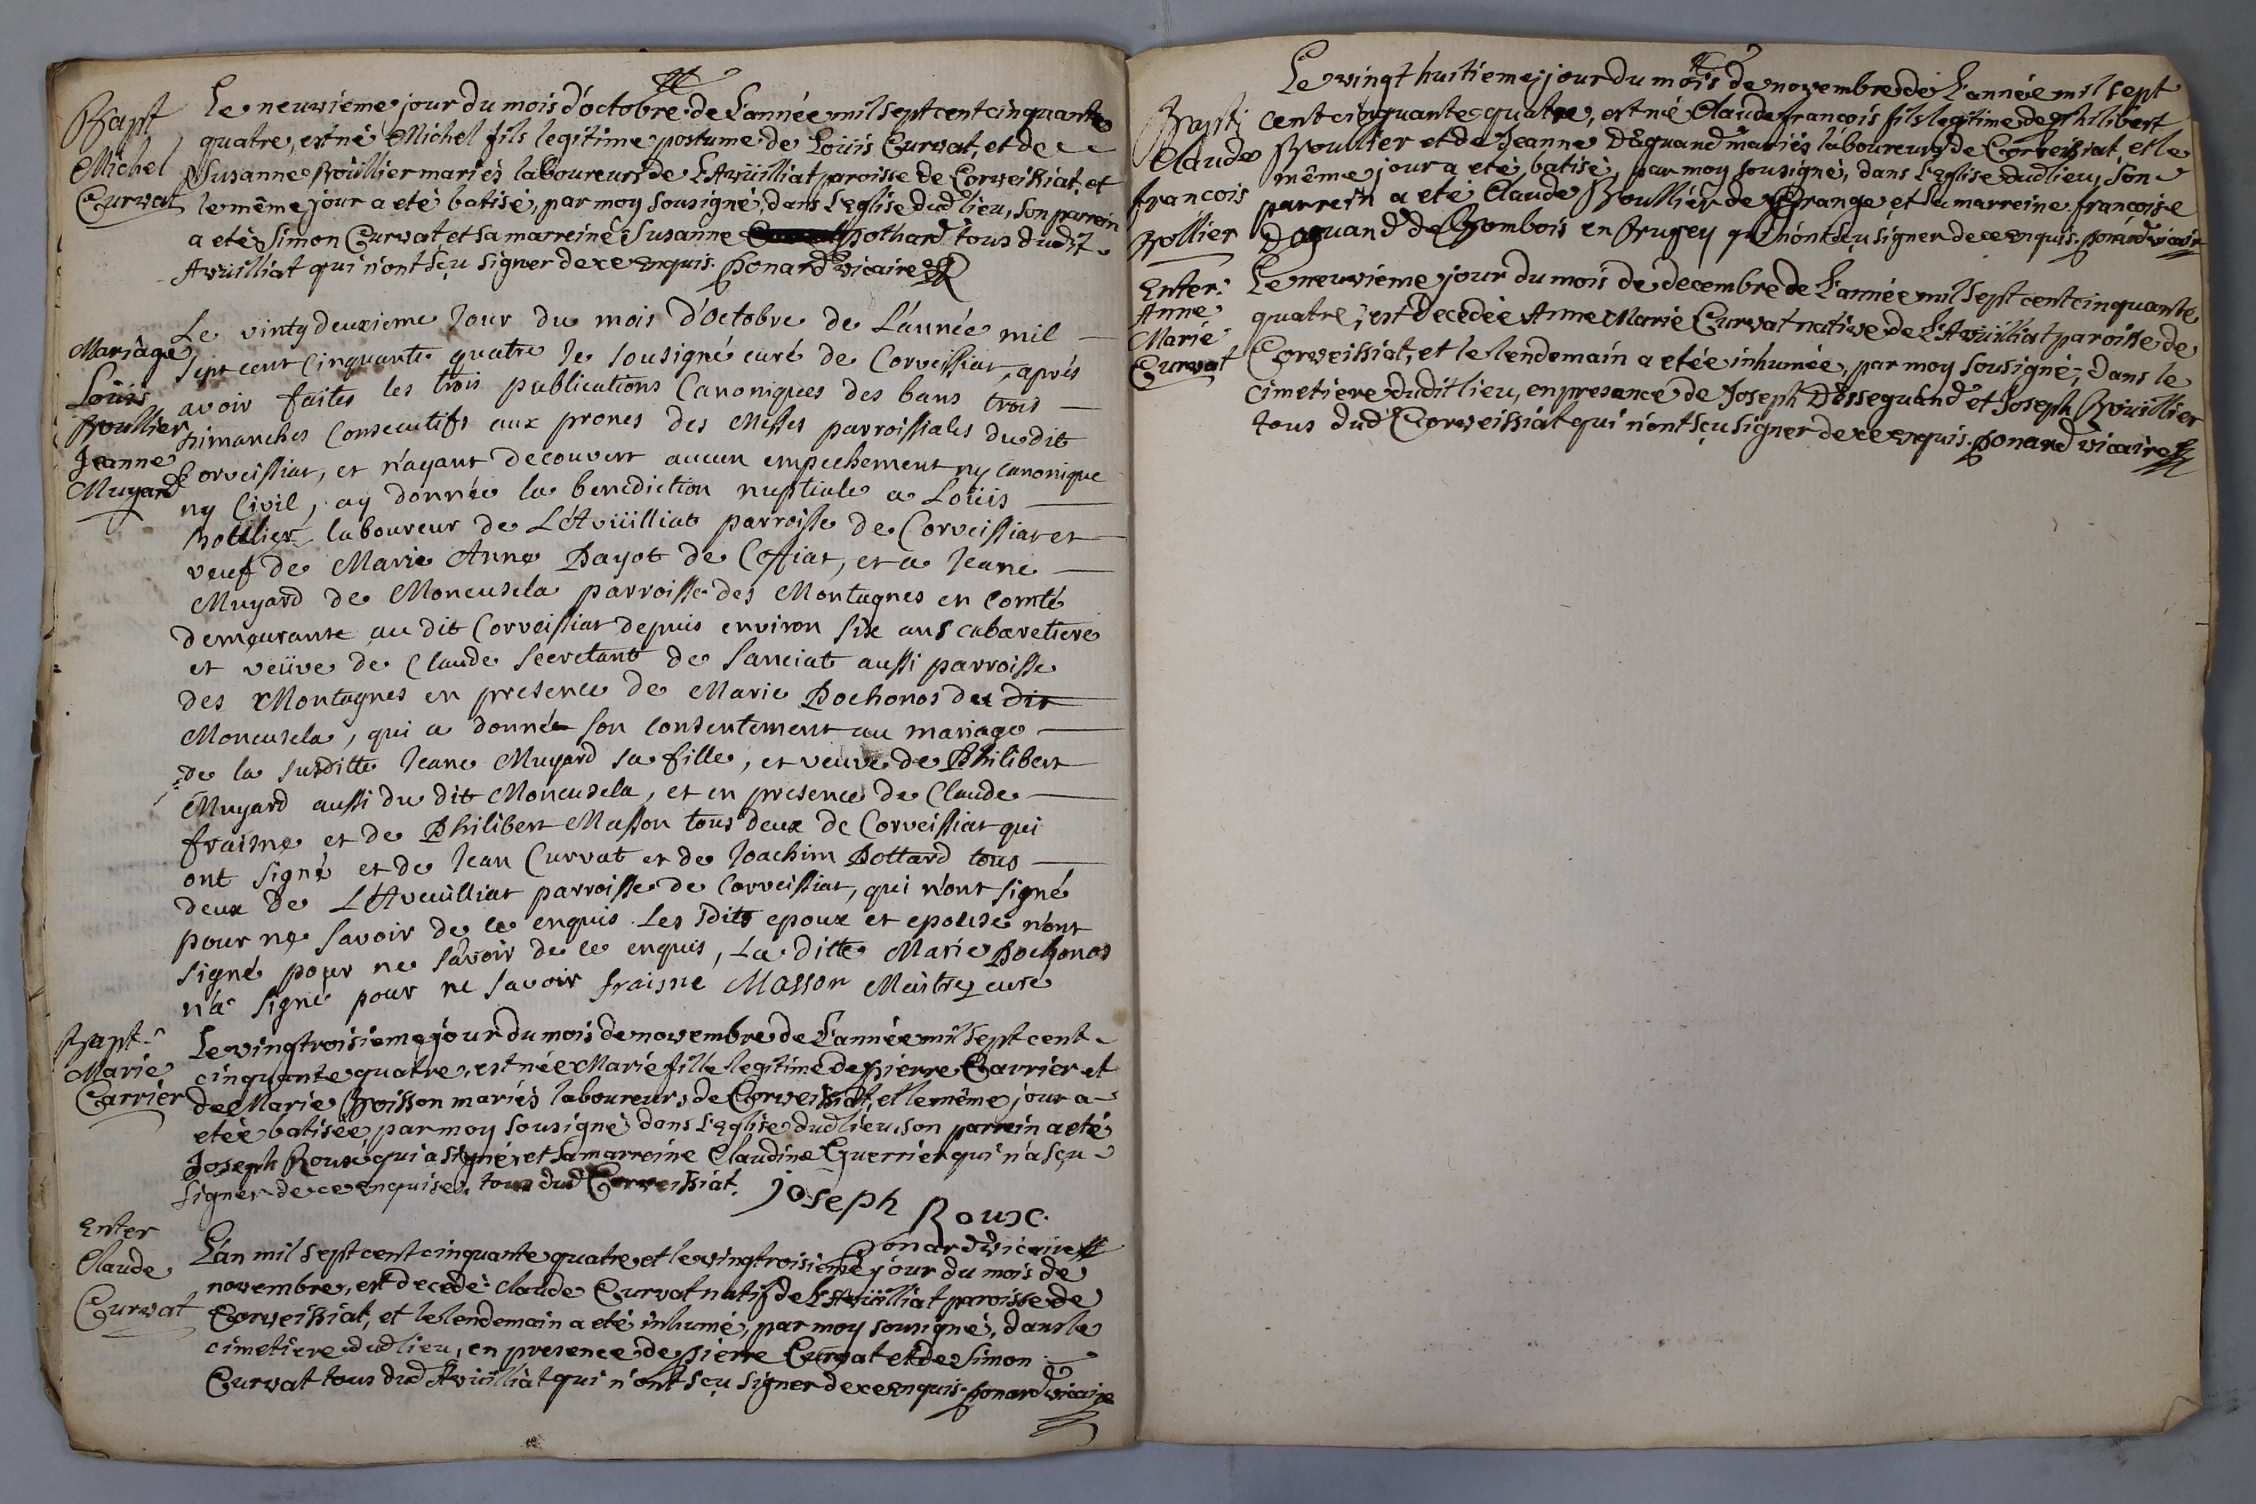 Bapt
Michel
Curvat
Le neuvieme jour du mois d'octobre de L'année mil sept cent cinquante
quatre, est né Michel fils legitime postume de Loüis Curvat, et de
Susanne Boüillier mariés laboureurs de L'Avüilliat paroisse de Corveissiat, et
le même jour a eté batisé, par moy sousigné, dans L'eglise dud lieu, son parrein
a eté Simon Curvat et sa marreine Susanne pothard tous dudit
Avüilliat qui n'ont sçu signer de ce enquis. ponard vicaire
Mariage
Loüis
Boullier
Jeanne
Muyard
Le vintg deuxieme Jour du mois d'Octobre de L'année mil
sept cent cinquante quatre Je sousigné curé de Corveissiat, aprés
avoir faites les trois publications Canoniques des bans trois
dimanches Consecutifs aux prones des Messes parroissiales du dit
Corveissiat, et n'ayant decouvert aucun empechement ny canonique
ny Civil, ay donnée la benediction nuptiale a Loüis
Bollier laboureur de L'Avüilliat parroisse de Corveissiat et
veuf de Marie Anne Payot de Coffiat, et a Jeane
Muyard de Moncusela parroisse des Montagnes en Comté
demeurante au dit Corveissiat depuis environ six ans cabaretiere
et veüve de Claude Secretant de Sanciat aussi parroisse
des Montagnes en presence de Marie Pochonos de dit
Moncusela, qui a donnée son consentement au mariage
de la susditte Jeane Muyard sa fille, et veuve de Philibert
Muyard aussi du dit Moncusela, et en presence de Claude
fraisne et de Philibert Masson tous deux de Corveissiat qui
ont signé et de Jean Curvat et de Joachim Pottard tous
deux de L'Aveüilliat parroisse de Corveissiat, qui n'ont signé
pour ne savoir de ce enquis. Les dits epoux et epouse n'ont
signé pour ne savoir de ce enquis, La ditte Marie Pochonos
n'a signé pour ne savoir fraisne Masson curé
Bapt
Marie
Carrier
Le vingtroisieme jour du mois de novembre de L'année mil sept cent
cinquante quatre, est née Marie fille legitime de pierre Carrier et
de Marie Boisson mariés laboureurs de Corveissiat, et le même jour a
eteé batiseé, par moy sousigné dans L'eglise dud lieu, son parrein a eté
Joseph Roux qui a signé, et sa marreine Claudine Guerrier qui n'a sçu
signer de ce enquise, tous dud Corveissiat.
joseph Roux.
ponard vicaire
Enter
Claude
Curvat
L'an mil sept cent cinquante quatre et le vingtroisieme jour du mois de
novembre, est decedé claude Curvat natif de L'Avüilliat paroisse de
Corveissiat, et le lendemain a eté inhumé, par moy sousigné, dans le
cimetiere dud lieu, en presence de pierre Curvat et de Simon
Curvat tous dud Avüilliat qui n'ont sçu signer de ce enquis. ponard vicaire
Bapt
Claude
francois
Bollier
Le vingt huitieme jour du mois de novembre de L'année mil sept
cent cinquante quatre, est né Claude francois fils legitime de philibert
Boullier et de Jeanne Daguand mariés laboureurs de Corveissiat, et le
même jour a eté batisé, par moy sousigné, dans L'eglise dud lieu, son
parrein a eté Claude Boullier de Grange et sa marreine françoise
Daguand de Bombois en Bugey qui n'ont sçu signer de ce enquis. ponard vicaire
Enter.
Anne
Marie
Curvat
Le neuvieme jour du mois de decembre de L'année mil sept cent cinquante
quatre, est decedeé Anne Marie Curvat native de L'Avüilliat paroisse de
Corveissiat, et le lendemain a eteé inhumeé, par moy sousigné, dans le
cimetiere dudit lieu, en presence de Joseph Desseguand et Joseph Boüillier
tous dud Corveissiat qui n'ont sçu signer de ce enquis. ponard vicaire